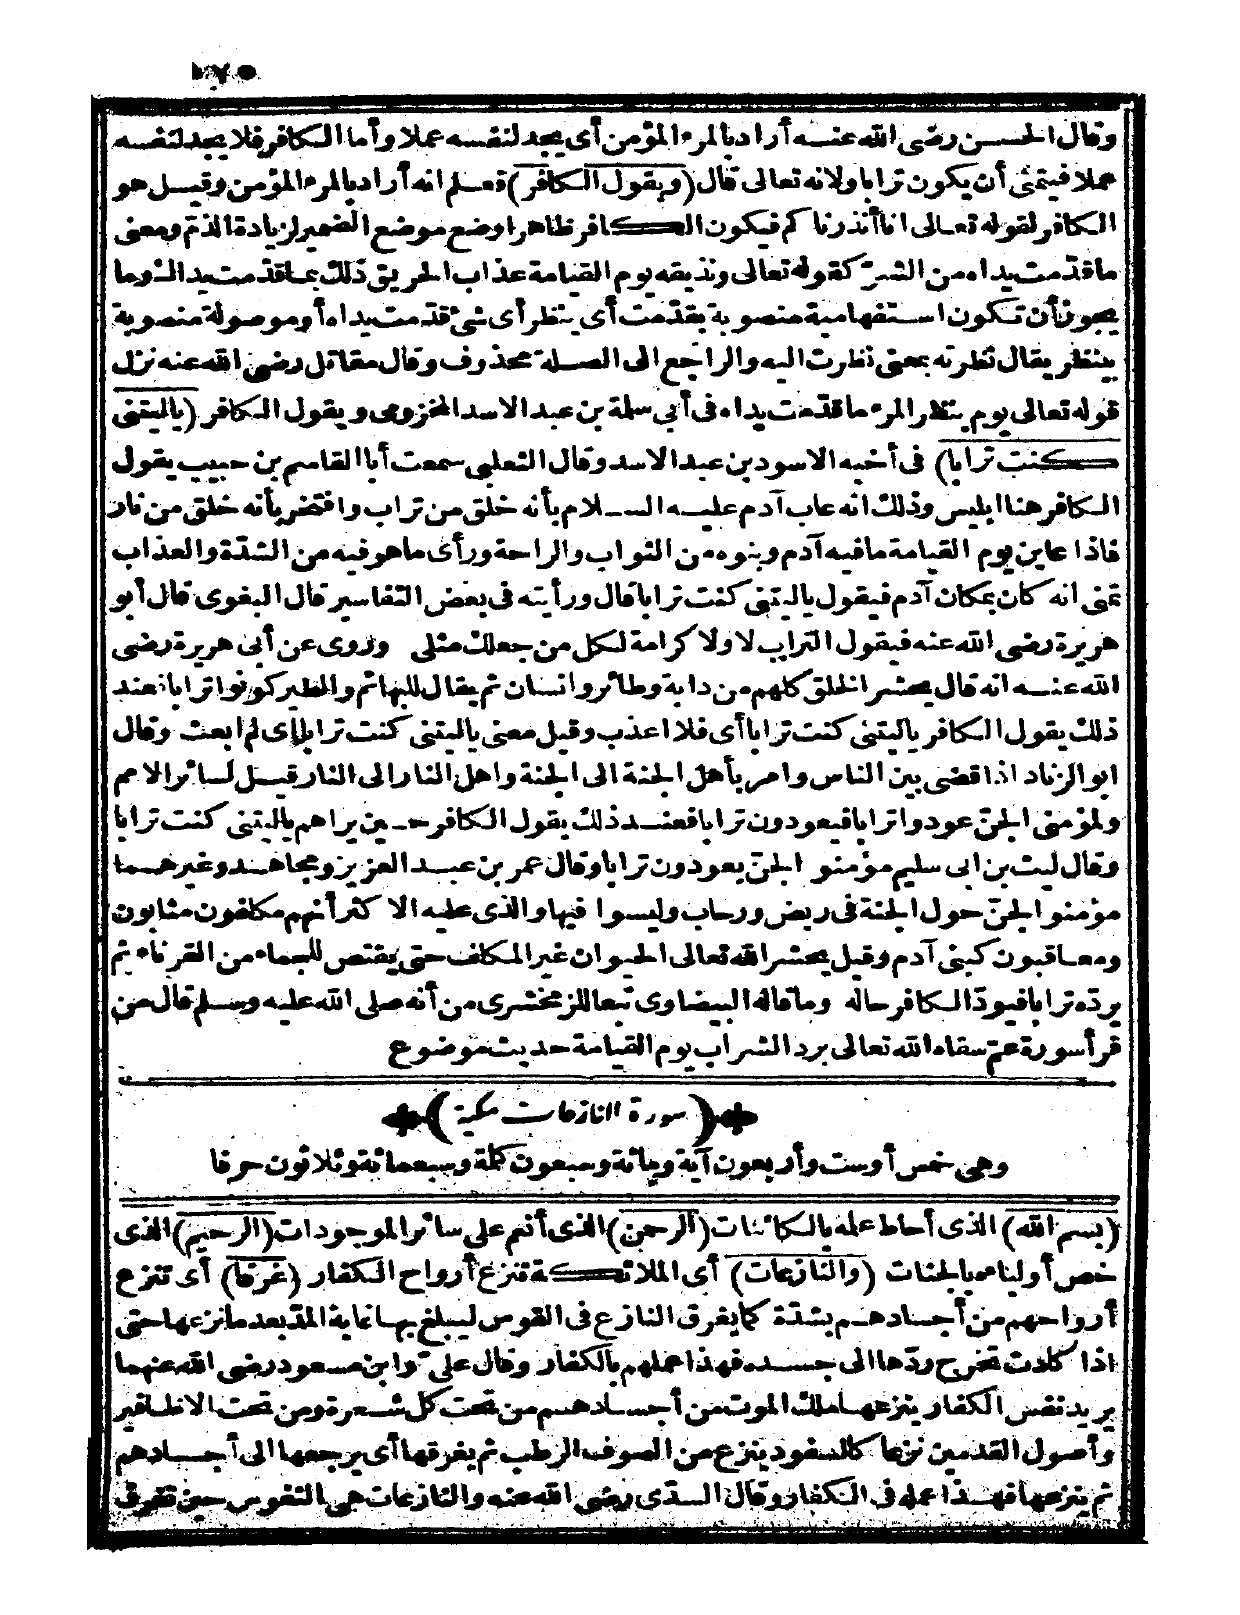 وقال الحسن رضى الله عنه أراد بالمرء المؤمن أى يجد لنفسه عملا وأما الكافر فلا يجد لنفسه
عملا فيتمنى أن يكون ترابا ولانه تعالى قال (ويقول الكافر) فعلم انه أراد بالمرء المؤمن وقيل هو
الكافر لقوله تعالى انا أنذرناكم فيكون الكافر ظاهرا وضع موضع الضمير لزيادة الذم ومعنى
ما قدّمت يداه من الشرّ كقوله تعالى ونذيقه يوم القيامة عذاب الحريق ذلك بما قدّمت يداك وما
يجوز أن تكون استفهامية منصوبة بقدّمت أى ينظر أى شئ قدّمت يداه أو موصولة منصوبة
بينظر يقال نظرته بمعنى نظرت اليه والراجع الى الصلة محذوف وقال مقاتل رضى الله عنه نزل
قوله تعالى يوم ينظر المرء ما قدّمت يداه فى أبى سلمة بن عبد الاسد المخزومى ويقول الكافر (ياليتنى
كنت ترابا) فى أخيه الاسود بن عبد الاسد وقال الثعلبى سمعت أبا القاسم بن حبيب يقول
الكافر هنا ابليس وذلك انه عاب آدم عليه السلام بأنه خلق من تراب وافتخر بأنه خلق من نار
فاذا عاين يوم القيامة ما فيه آدم وبنوه من الثواب والراحة ورأى ما هو فيه من الشدّة والعذاب
تمنى انه كان بمكان آدم فيقول ياليتنى كنت ترابا قال ورأيته فى بعض التفاسير قال البغوى قال أبو
هريرة رضى الله عنه فيقول التراب لا ولا كرامة لك كل من جعلك مثلى وروى عن أبى هريرة رضى
الله عنه انه قال يحشر الخلق كلهم من دابة وطائر وانسان ثم يقال للبهائم والطير كونوا ترابا فعند
ذلك يقول الكافر ياليتنى كنت ترابا أى فلا اعذب وقيل معنى ياليتنى كنت ترابا أى لم ابعث وقال
ابو الزناد اذا قضى بين الناس وامر بأهل الجنة الى الجنة واهل النار الى النار قيل لسائر الامم
ولمؤمنى الجنّ عودوا ترابا فيعودون ترابا فعند ذلك يقول الكافر حين يراهم ياليتنى كنت ترابا
وقال ليث بن ابى سليم مؤمنو الجنّ يعودون ترابا وقال عمر بن عبد العزيز ومجاهد وغيرهما
مؤمنو الجنّ حول الجنة فى ربض ورحاب وليسوا فيها والذى عليه الاكثر أنهم مكلفون مثابون
ومعاقبون كبنى آدم وقيل يحشر الله تعالى الحيوان غير المكلف حتى يقتص للجماء من القرناء ثم
يردّه ترابا فيودّ الكافر حاله وما قاله البيضاوى تبعا للزمخشرى من أنه صلى الله عليه وسلم قال من
قرأ سورة عمّ سقاه الله تعالى برد الشراب يوم القيامة حديث موضوع
(سورة النازعات مكية)
وهى خمس أوست وأربعون آية ومائة وسبعون كلمة وسبعمائة وثلاثون حرفا
(بسم الله) الذى أحاط علمه بالكائنات (الرحمن) الذى أنعم على سائر الموجودات (الرحيم) الذى
خص أولياءه بالجنات (والنازعات) أى الملائكة تنزع أرواح الكفار (غرقا) أى تنزع
أرواحهم من أجسادهم بشدّة كما يغرق النازع فى القوس ليبلغ بها غاية المدّ بعد ما نزعها حتى
اذا كادت تخرج ردّها الى جسده فهذا عملهم بالكفار وقال علىّ وابن مسعود رضى الله عنهما
يريد نفس الكفار ينزعها ملك الموت من أجسادهم من تحت كل شعرة ومن تحت الاظافير
وأصول القدمين نزعا كالسفود ينزع من الصوف الرطب ثم يغرقها أى يرجعها الى أجسادهم
ثم ينزعها فهذا عمله فى الكفار وقال السدّى رضى الله عنه والنازعات هى النفوس حين تغرق